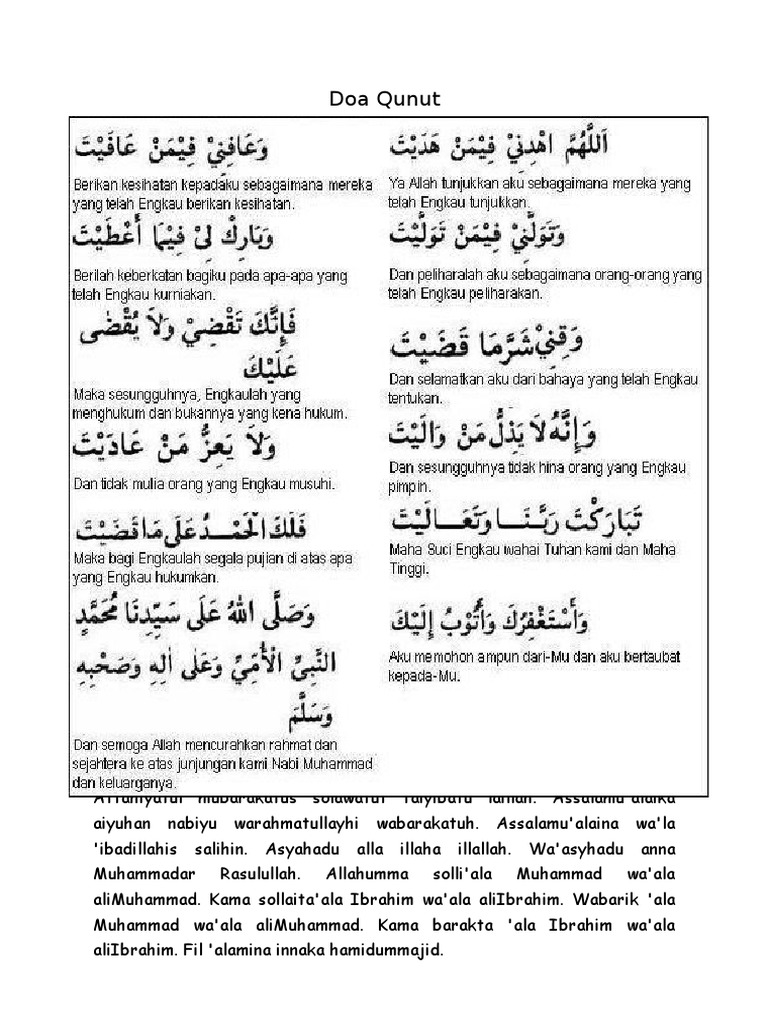 Doa Qunut
اَللَّهُمَّ اهْدِنِيْ فِيْمَنْ هَدَيْتَ
Ya Allah tunjukkan aku sebagaimana mereka yang
telah Engkau tunjukkan.
وَعَافِنِيْ فِيْمَنْ عَافَيْتَ
Berikan kesihatan kepadaku sebagaimana mereka
yang telah Engkau berikan kesihatan.
وَتَوَلَّنِيْ فِيْمَنْ تَوَلَّيْتَ
Dan peliharalah aku sebagaimana orang-orang yang
telah Engkau peliharakan.
وَبَارِكْ لِيْ فِيْمَا أَعْطَيْتَ
Berilah keberkatan bagiku pada apa-apa yang
telah Engkau kurniakan.
وَقِنِيْ شَرَّمَا قَضَيْتَ
Dan selamatkan aku dari bahaya yang telah Engkau
tentukan.
فَإِنَّكَ تَقْضِيْ وَلَا يُقْضٰى
عَلَيْكَ
Maka sesungguhnya, Engkaulah yang
menghukum dan bukannya yang kena hukum.
وَإِنَّهُ لَا يَذِلُّ مَنْ وَالَيْتَ
Dan sesungguhnya tidak hina orang yang Engkau
pimpin.
وَلَا يَعِزُّ مَنْ عَادَيْتَ
Dan tidak mulia orang yang Engkau musuhi.
تَبَارَكْتَ رَبَّنَا وَتَعَالَيْتَ
Maha Suci Engkau wahai Tuhan kami dan Maha
Tinggi.
فَلَكَ الْحَمْدُ عَلَى مَا قَضَيْتَ
Maka bagi Engkaulah segala pujian di atas apa
yang Engkau hukumkan.
وَأَسْتَغْفِرُكَ وَأَتُوْبُ إِلَيْكَ
Aku memohon ampun dari-Mu dan aku bertaubat
kepada-Mu.
وَصَلَّى اللهُ عَلَى سَيِّدِنَا مُحَمَّدٍ
النَّبِيِّ الْأُمِّيِّ وَعَلَى اٰلِهِ وَصَحْبِهِ
وَسَلَّمَ
Dan semoga Allah mencurahkan rahmat dan
sejahtera ke atas junjungan kami Nabi Muhammad
dan keluarganya.
Attahiyatul mubarakatus solawatut taiyibatu Assalamu'alaika
aiyuhan nabiyu warahmatullayhi wabarakatuh. Assalamu'alaina wa'la
'ibadillahis salihin. Asyahadu alla illaha illallah. Wa'asyhadu anna
Muhammadar Rasulullah. Allahumma solli'ala Muhammad wa'ala
aliMuhammad. Kama sollaita'ala Ibrahim wa'ala aliIbrahim. Wabarik 'ala
Muhammad wa'ala aliMuhammad. Kama barakta 'ala Ibrahim wa'ala
aliIbrahim. Fil 'alamina innaka hamidummajid.